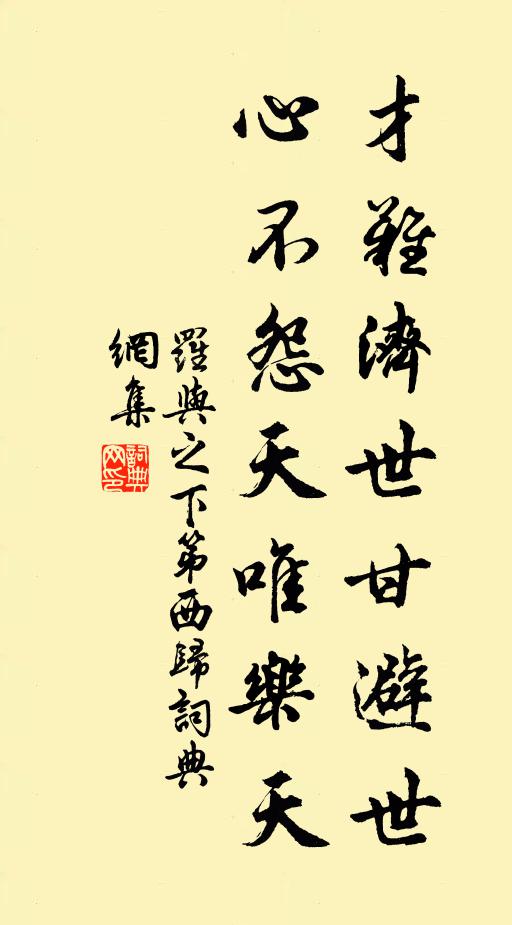 才難濟世甘避世
心不怨天唯樂天
羅與之下第西歸詞典
網集
詞典
網印